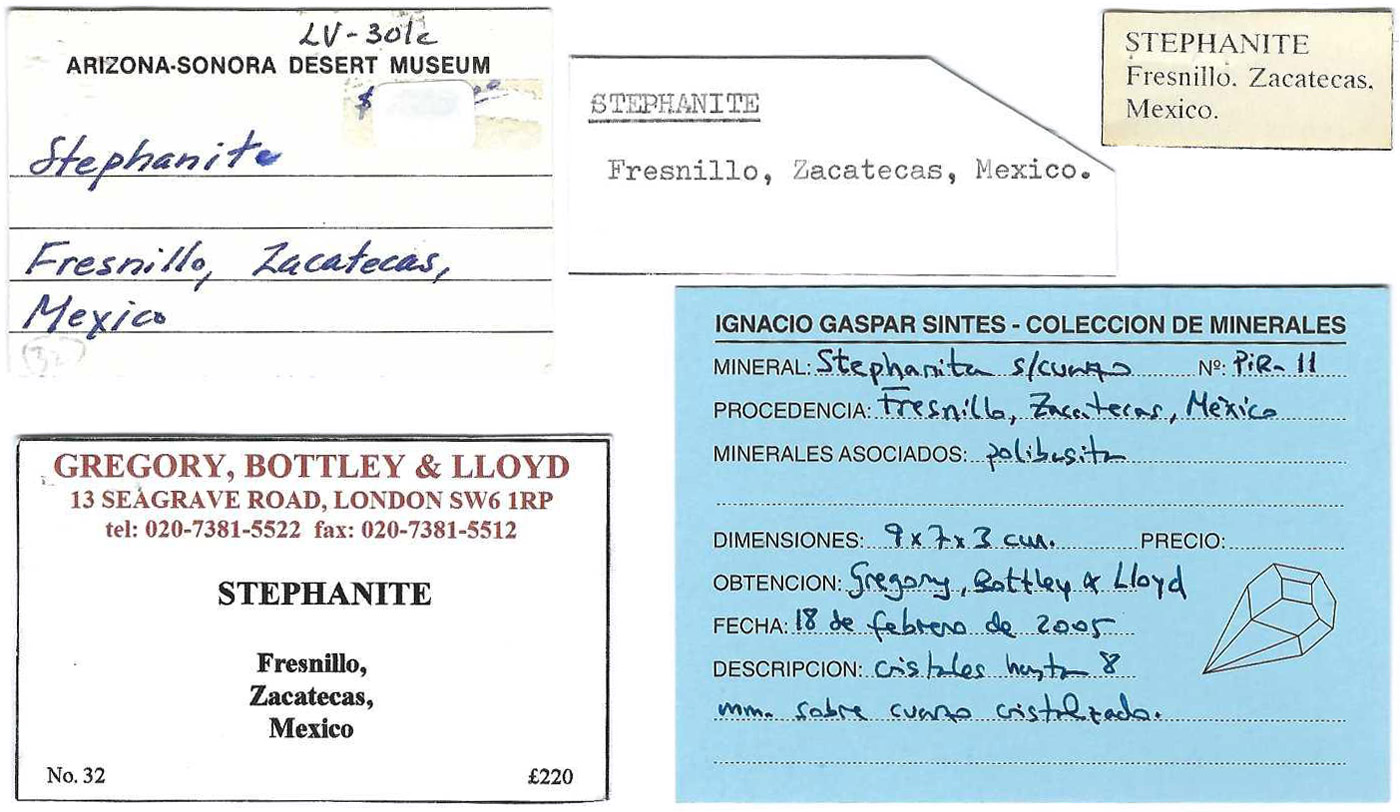 LV-301c
ARIZONA-SONORA DESERT MUSEUM
$
Stephanite
Fresnillo, Zacatecas,
Mexico
32
STEPHANITE
Fresnillo, Zacatecas, Mexico.
STEPHANITE
Fresnillo. Zacatecas.
Mexico.
GREGORY, BOTTLEY & LLOYD
13 SEAGRAVE ROAD, LONDON SW6 1RP
tel: 020-7381-5522 fax: 020-7381-5512
STEPHANITE
Fresnillo,
Zacatecas,
Mexico
No. 32 £220
IGNACIO GASPAR SINTES - COLECCION DE MINERALES
MINERAL: Stephanita s/cuarzo Nº: PiR- 11
PROCEDENCIA: Fresnillo, Zacatecas, Mexico
MINERALES ASOCIADOS: polibasita
DIMENSIONES: 9 x 7 x 3 cm. PRECIO:
OBTENCION: Gregory, Bottley & Lloyd
FECHA: 18 de febrero de 2005
DESCRIPCION: cristales hasta 8
mm. sobre cuarzo cristalizado.